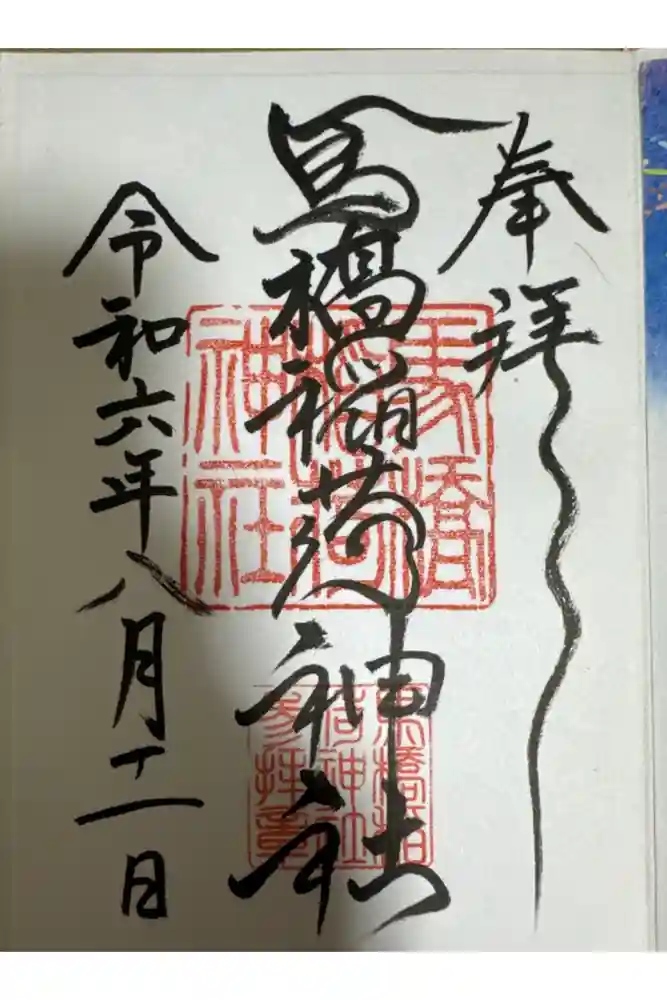 奉拝
馬橋稲荷神社
令和六年八月十一日
馬橋
稲荷
神社
馬橋稲
荷神社
参拝章